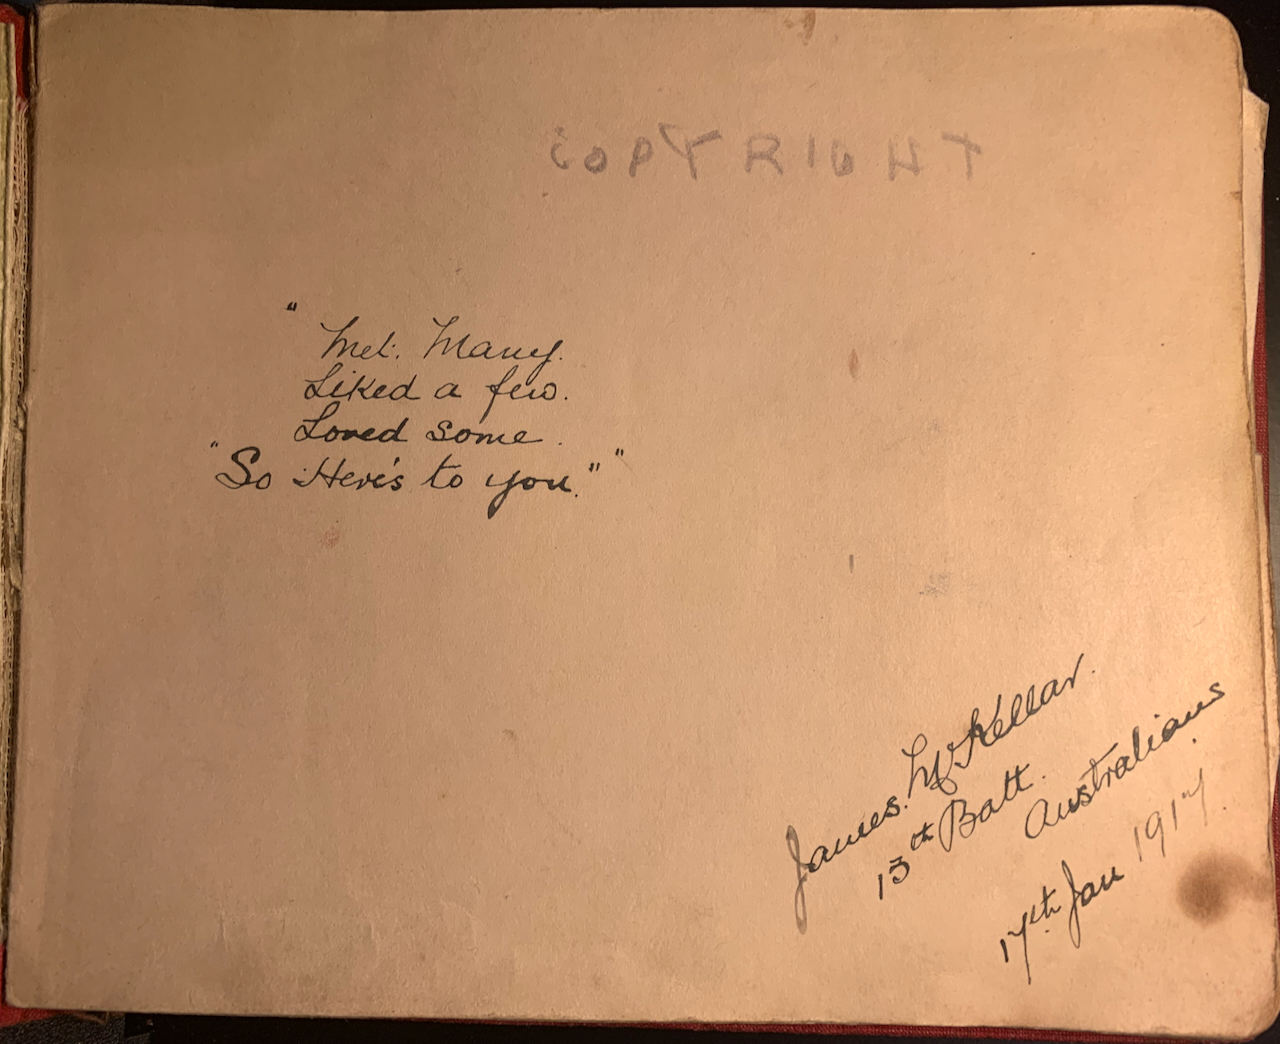 COPYRIGHT
"
Met. Many.
Liked a few.
Loved some.
" "So Here's to you." "
James. McKellar.
13th Batt.
Australians
17th Jan 1917.